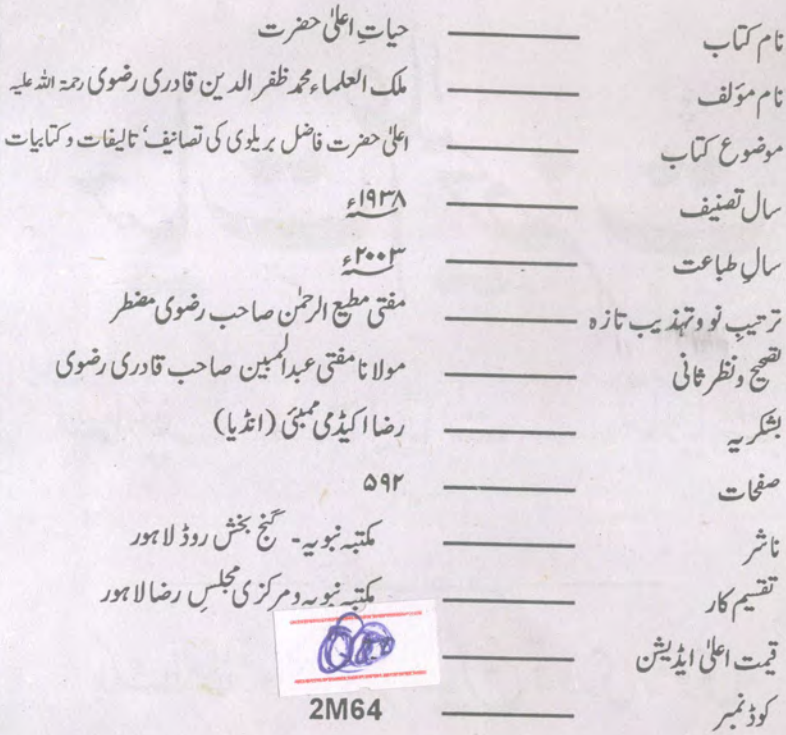 نام کتاب ——— حیاتِ اعلیٰ حضرت
نام مؤلف ——— ملک العلماء محمد ظفر الدین قادری رضوی رحمۃ اللہ علیہ
موضوع کتاب ——— اعلیٰ حضرت فاضل بریلوی کی تصانیف، تالیفات و کتابیات
سال تصنیف ——— ۱۹۳۸ء
سالِ طباعت ——— ۲۰۰۳ء
ترتیبِ نو و تہذیب تازہ ——— مفتی مطیع الرحمٰن صاحب رضوی مضطر
تصحیح و نظر ثانی ——— مولانا مفتی عبدالمبین صاحب قادری رضوی
بشکریہ ——— رضا اکیڈمی ممبئی (انڈیا)
صفحات ——— ۵۹۲
ناشر ——— مکتبہ نبویہ - گنج بخش روڈ لاہور
تقسیم کار ——— مکتبہ نبویہ و مرکزی مجلسِ رضا لاہور
قیمت اعلیٰ ایڈیشن ———
کوڈ نمبر ——— 2M64